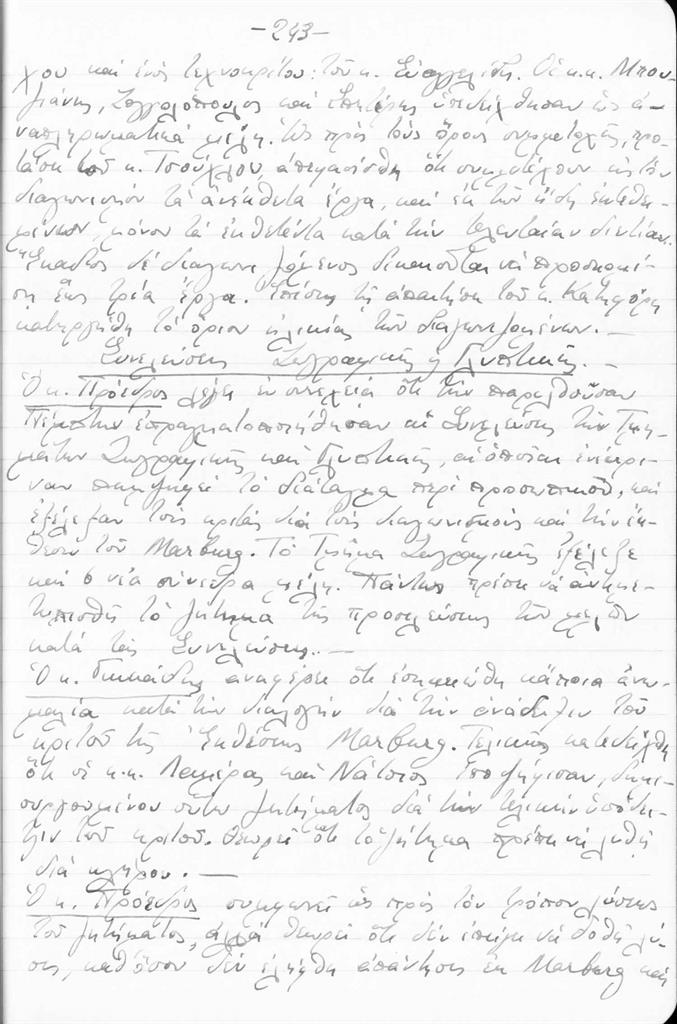 -243-
χου καὶ ἑνὸς τεχνοκρίτου: τοῦ κ. Εὐαγγελίδη. Οἱ κ.κ. Μπου-
ζιάνης, Ζογγολόπουλος καὶ ὑπεδείχθησαν ὡς ἀ-
ναπληρωματικὰ μέλη. Ὡς πρὸς τοὺς ὅρους συμμετοχῆς, προ-
τάσει τοῦ κ. Τσούχλου, ἀπεφασίσθη ὅτι συμμετέχουν εἰς τὸν
διαγωνισμὸν τὰ ἀνέκθετα ἔργα, καὶ ἐκ τῶν ἤδη ἐκτεθει-
μένων, μόνον τὰ ἐκτεθέντα κατὰ τὴν τελευταίαν διετίαν.
Ἕκαστος δὲ διαγωνιζόμενος δικαιοῦται νὰ προσκομί-
σῃ ἕως τρία ἔργα. Ἐπίσης τῇ ἀπαιτήσει τοῦ κ.
κατηργήθη τὸ ὅριον ἡλικίας τῶν διαγωνιζομένων.—
Συνελεύσεις Ζωγραφικῆς & Γλυπτικῆς.—
Ὁ κ. Πρόεδρος λέγει ἐν συνεχείᾳ ὅτι τὴν παρελθοῦσαν
Πέμπτην ἐπραγματοποιήθησαν αἱ Συνελεύσεις τῶν Τμη-
μάτων Ζωγραφικῆς καὶ Γλυπτικῆς, αἱ ὁποῖαι ἐνέκρι-
ναν παμψηφεὶ τὸ διάταγμα περὶ προσωπικοῦ, καὶ
ἐξέλεξαν τοὺς κριτὰς διὰ τοὺς διαγωνισμοὺς καὶ τὴν ἔκ-
θεσιν τοῦ Marburg. Τὸ Τμῆμα Ζωγραφικῆς ἐξέλεξε
καὶ 6 νέα πάρεδρα μέλη. Πάντως πρέπει νὰ ἀντιμε-
τωπισθῇ τὸ ζήτημα τῆς προσελεύσεως τῶν μελῶν
κατὰ τὰς Συνελεύσεις.—
Ὁ κ. ἀναφέρει ὅτι ἐσημειώθη κάποια ἀνω-
μαλία κατὰ τὴν διαλογὴν διὰ τὴν ἀνάδειξιν τοῦ
κριτοῦ τῆς Ἐκθέσεως Marburg. Τελικῶς κατεδείχθη
ὅτι οἱ κ.κ. καὶ Νάτσιος ἰσοψήφισαν, δημι-
ουργουμένου οὕτω ζητήματος διὰ τὴν τελικὴν ὑπόδει-
ξιν τοῦ κριτοῦ. Θεωρεῖ ὅτι τὸ ζήτημα πρέπει νὰ λυθῇ
διὰ κλήρου.—
Ὁ κ. Πρόεδρος συμφωνεῖ ὡς πρὸς τὸν τρόπον λύσεως
τοῦ ζητήματος, ἀλλὰ θεωρεῖ ὅτι δὲν ἐπείγει νὰ δοθῇ λύ-
σις, καθ' ὅσον δὲν ἐλήφθη ἀπάντησις ἐκ Marburg καὶ